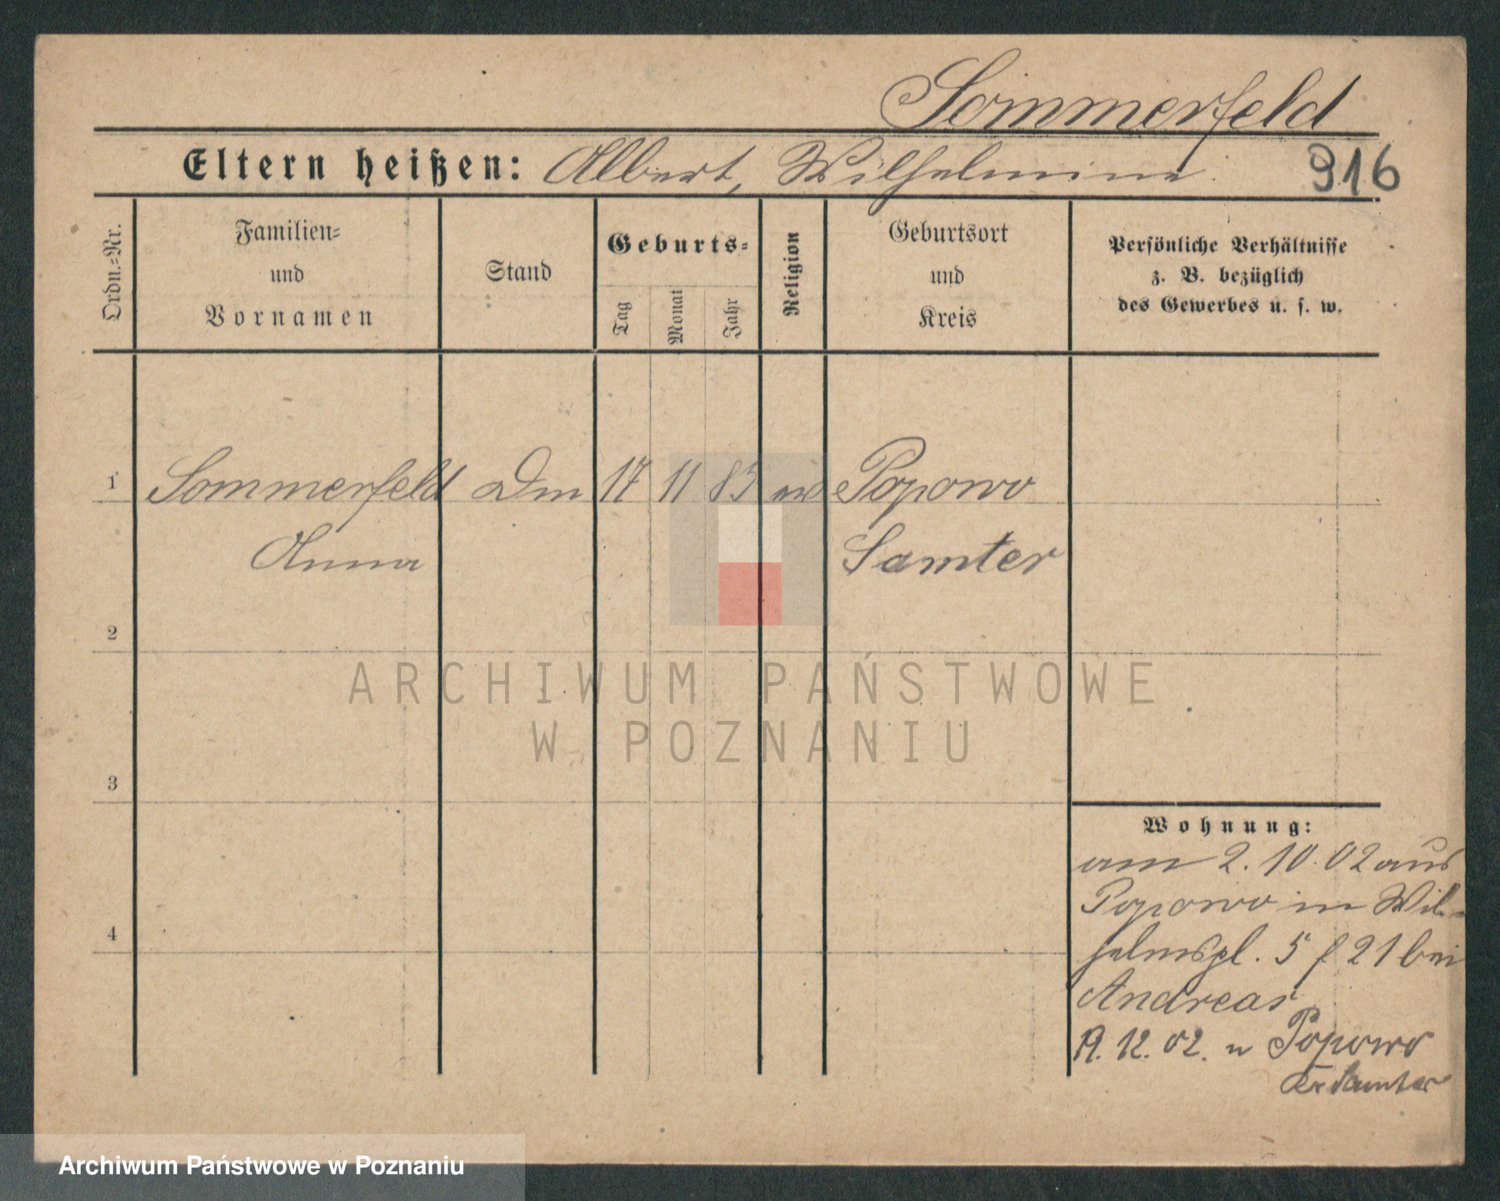 Sommerfeld
Eltern heißen: Albert, Wilhelmine.
916
Ordn.=Nr.
Familien=
und
Vornamen
Stand
Geburts=
Tag
Monat
Jahr
Religion
Geburtsort
und
Kreis
Persönliche Verhältnisse
z. B. bezüglich
des Gewerbes u. s. w.
1
Sommerfeld Dm 17 11 85 Popowo
Anna Samter
2
3
4
ARCHIWUM PAŃSTWOWE
W POZNANIU
Wohnung:
am 2. 10. 02 aus
Popowo in Wil-
helmspl. 5 f 21 bei
Andreas
19. 12. 02. n Popowo
Kr Samter
Archiwum Państwowe w Poznaniu